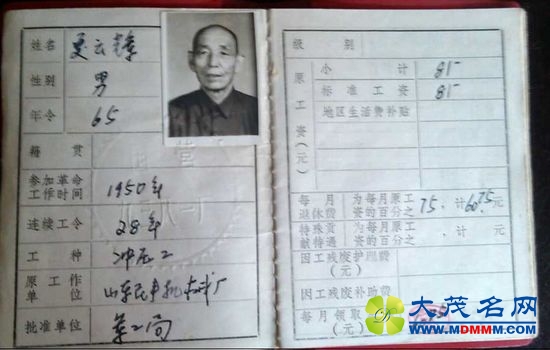 姓名
性别 男
年令 65
籍贯
参加革命工作时间 1950年
连续工令 28年
工种 冲压工
原工作单位
批准单位
级别
原工资(元)
小计 85
标准工资 85
地区生活费补贴
每月退休费 为每月原工资的百分之 75. 计 元
特殊贡献待遇 为每月原工资的百分之 计 元
因工残废护理费(元)
因工残废补助费(元)
每月领取 (元)
大茂名网
WWW.MDMMM.COM